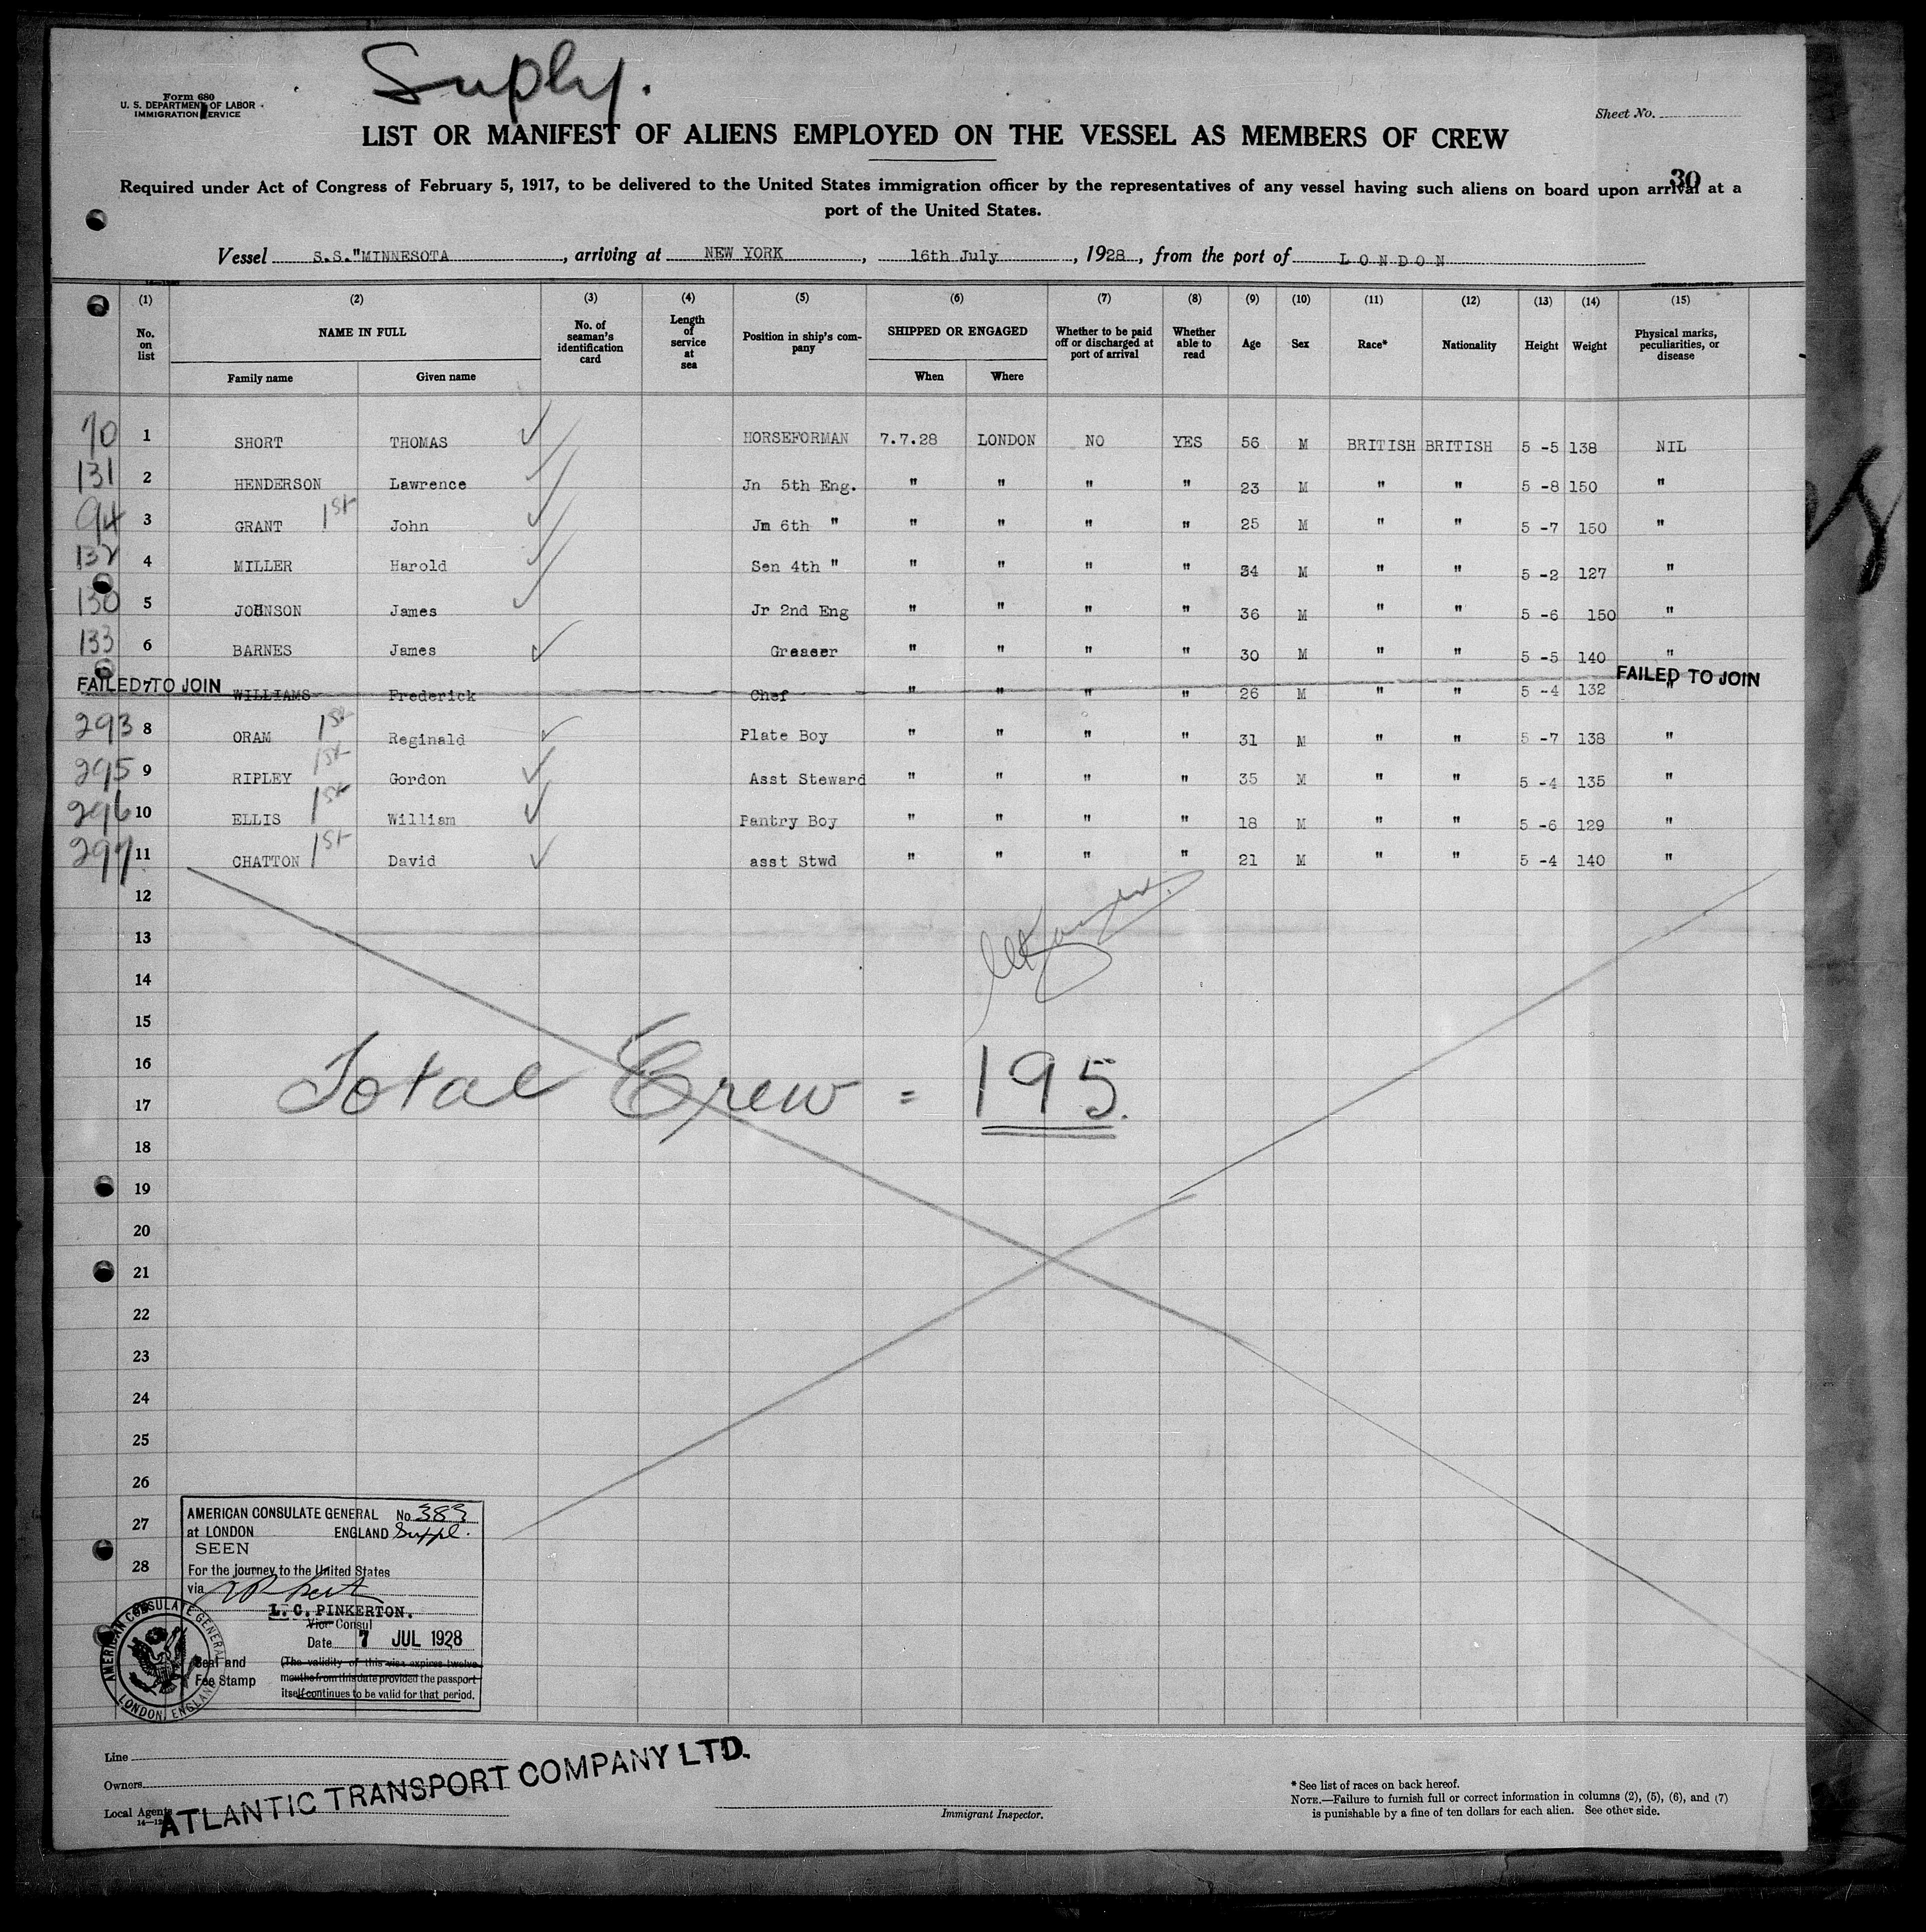 Suply.
Form 680
U. S. DEPARTMENT OF LABOR
IMMIGRATION SERVICE
Sheet No.
LIST OR MANIFEST OF ALIENS EMPLOYED ON THE VESSEL AS MEMBERS OF CREW
30
Required under Act of Congress of February 5, 1917, to be delivered to the United States immigration officer by the representatives of any vessel having such aliens on board upon arrival at a
port of the United States.
Vessel S.S."MINNESOTA , arriving at NEW YORK , 16th July , 1928 , from the port of LONDON
(1) (2) (3) (4) (5) (6) (7) (8) (9) (10) (11) (12) (13) (14) (15)
No. on list NAME IN FULL No. of seaman's identification card Length of service at sea Position in ship's company SHIPPED OR ENGAGED Whether to be paid off or discharged at port of arrival Whether able to read Age Sex Race* Nationality Height Weight Physical marks, peculiarities, or disease
Family name Given name When Where
70 1 SHORT THOMAS HORSEFORMAN 7.7.28 LONDON NO YES 56 M BRITISH BRITISH 5 -5 138 NIL
131 2 HENDERSON Lawrence Jn 5th Eng. " " " " 23 M " " 5 -8 150 "
94 3 GRANT 1st John Jm 6th " " " " " 25 M " " 5 -7 150 "
132 4 MILLER Harold Sen 4th " " " " " 34 M " " 5 -2 127 "
130 5 JOHNSON James Jr 2nd Eng " " " " 36 M " " 5 -6 150 "
133 6 BARNES James Greaser " " " " 30 M " " 5 -5 140 "
FAILED TO JOIN 7 WILLIAMS Frederick Chef " " " " 26 M " " 5 -4 132 " FAILED TO JOIN
293 8 ORAM 1st Reginald Plate Boy " " " " 31 M " " 5 -7 138 "
295 9 RIPLEY 1st Gordon Asst Steward " " " " 35 M " " 5 -4 135 "
296 10 ELLIS 1st William Pantry Boy " " " " 18 M " " 5 -6 129 "
297 11 CHATTON 1st David asst Stwd " " " " 21 M " " 5 -4 140 "
12
13
14
15
16
Total Crew = 195.
17
18
19
20
21
22
23
24
25
26
27
28
AMERICAN CONSULATE GENERAL No 383
at LONDON ENGLAND Suppl.
SEEN
For the journey to the United States
via
L. C. PINKERTON.
Vice Consul
Date 7 JUL 1928
Seal and
Fee Stamp
(The validity of this visa expires twelve
months from this date provided the passport
itself continues to be valid for that period.
AMERICAN CONSULATE GENERAL
LONDON, ENGLAND
Line
Owners
Local Agents
ATLANTIC TRANSPORT COMPANY LTD.
Immigrant Inspector.
* See list of races on back hereof.
NOTE.—Failure to furnish full or correct information in columns (2), (5), (6), and (7)
is punishable by a fine of ten dollars for each alien. See other side.